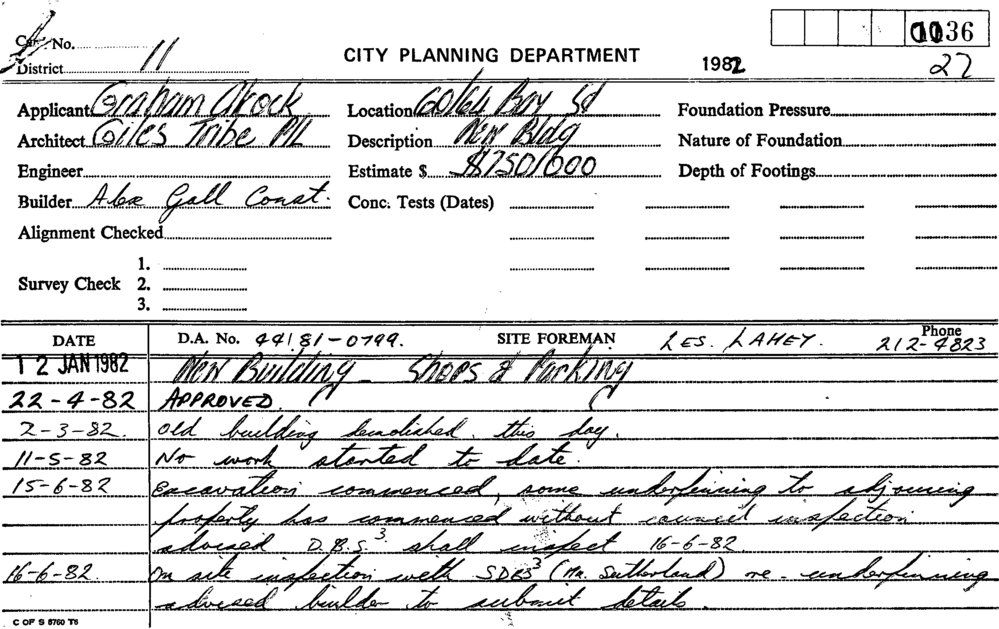 Card No.
0036
District 11
CITY PLANNING DEPARTMENT
1982
27
Applicant Graham Crock
Location 60/64 Bay St
Foundation Pressure
Architect Giles Tribe P/L
Description New Bldg
Nature of Foundation
Engineer
Estimate $ $750/000
Depth of Footings
Builder Alex Gall Const.
Conc. Tests (Dates)
Alignment Checked
Survey Check 1.
2.
3.
DATE D.A. No. 44/81-0799. SITE FOREMAN LES. LAHEY. Phone 212-4823
12 JAN 1982 New Building - Shops & Parking
22-4-82 APPROVED.
2-3-82. Old building demolished this day.
11-5-82 No work started to date.
15-6-82 Excavation commenced, some underpinning to adjoining
property has commenced without council inspection
advised D.B.S.3 shall inspect 16-6-82.
16-6-82. On site inspection with SDBS3 (Mr. Sutherland) re- underpinning
advised builder to submit details.
C OF S 5760 T6